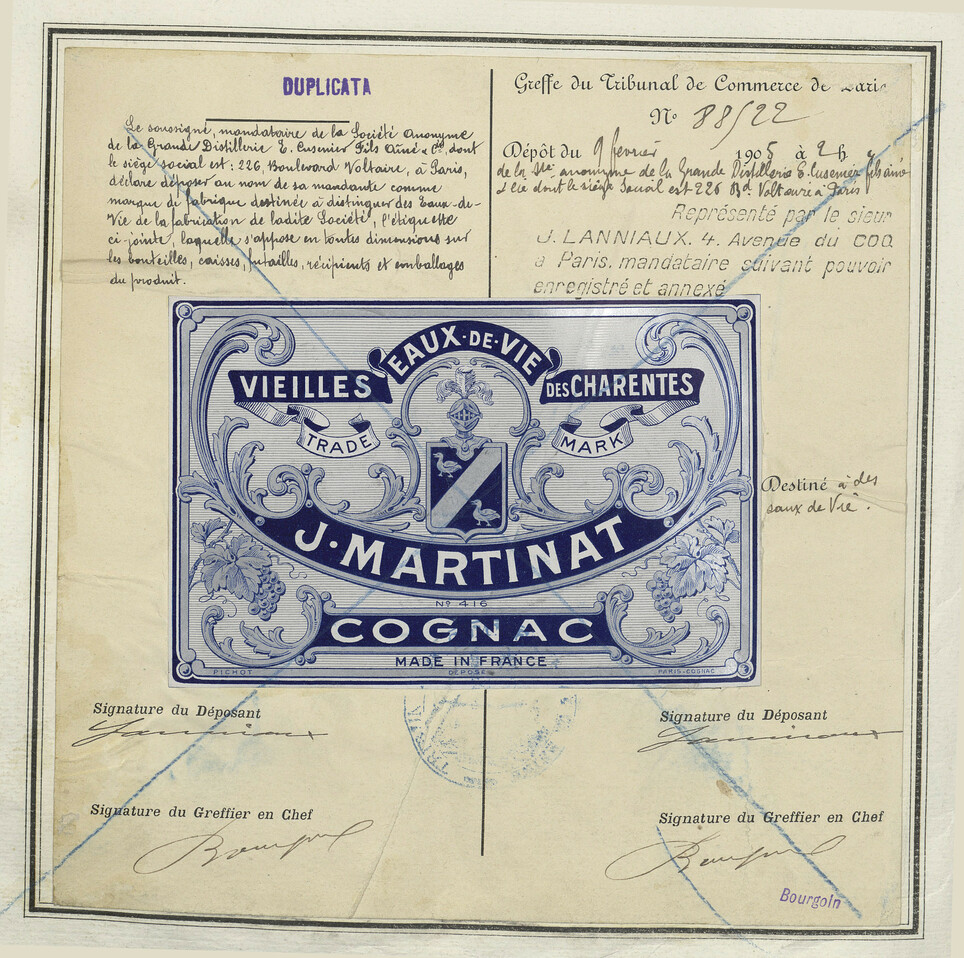 DUPLICATA
Le soussigné, mandataire de la Société Anonyme
de la Grande Distillerie E. Cusenier Fils Aîné & Cie, dont
le siège social est : 226, Boulevard Voltaire, à Paris,
déclare déposer au nom de sa mandante comme
marque de fabrique destinée à distinguer des Eaux-de-
Vie de la fabrication de ladite Société, l'étiquette
ci-jointe, laquelle s'appose en toutes dimensions sur
les bouteilles, caisses, futailles, récipients et emballages
du produit.
Greffe du Tribunal de Commerce de Paris
No 88522
Dépôt du 9 février 1905 à 2 h
de la Sté anonyme de la Grande Distillerie E. Cusenier fils aîné
& Cie dont le siège Social est 226 Bd Voltaire à Paris
Représenté par le sieur
J. LANNIAUX. 4. Avenue du COQ
à Paris. mandataire suivant pouvoir
enregistré et annexé
EAUX-DE-VIE
VIEILLES
DES CHARENTES
TRADE
MARK
J. MARTINAT
No 416
COGNAC
MADE IN FRANCE
PICHOT
DÉPOSÉ
PARIS-COGNAC
Destiné à des
eaux de Vie.
Signature du Déposant
Lanniaux
Signature du Greffier en Chef
Signature du Déposant
Lanniaux
Signature du Greffier en Chef
Bourgoin